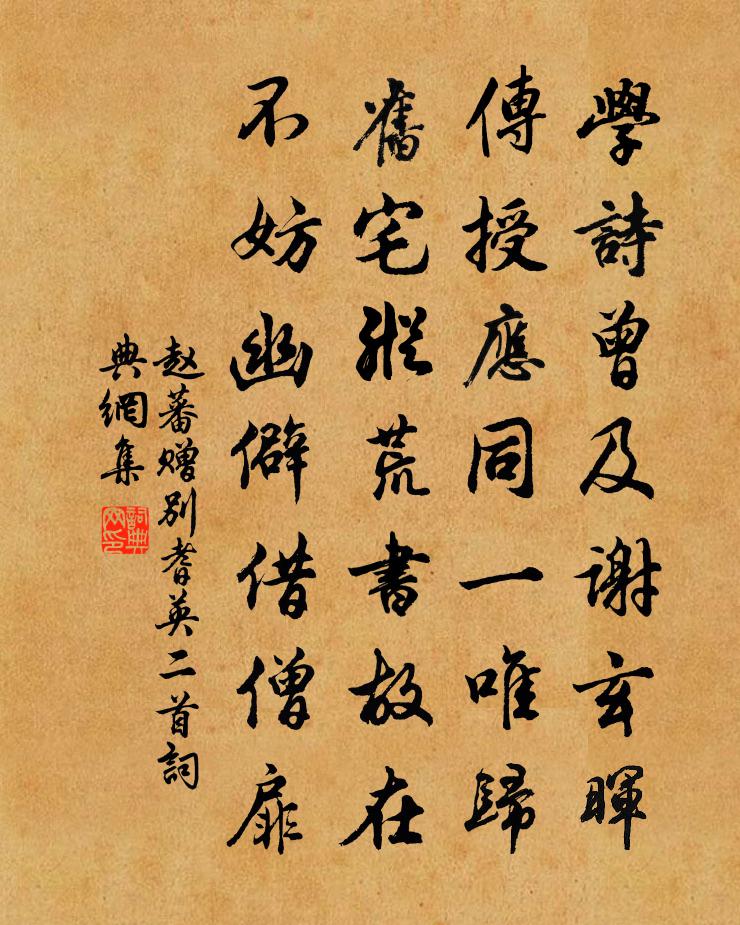 學詩曾及謝玄暉
傳授應同一唯歸
舊宅雖荒書故在
不妨幽僻借僧扉
赵蕃赠别耆英二首詞
典網集
詞典
网印